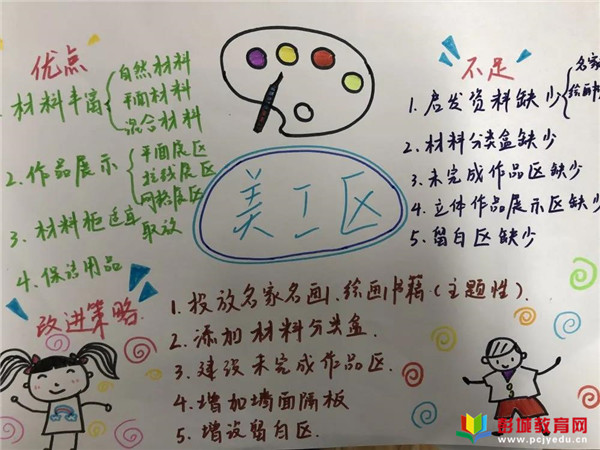 优点
1.材料丰富
自然材料
平面材料
混合材料
2.作品展示
平面展区
拉线展区
网格展区
3.材料柜适耳
取放
4.保洁用品
美工区
不足
1.启发资料缺少
名家
绘画
2.材料分类盒缺少
3.未完成作品区缺少
4.立体作品展示区缺少
5.留白区缺少
改进策略
1.投放名家名画、绘画书籍(主题性).
2.添加材料分类盒.
3.建设未完成作品区.
4.增加墙面隔板
5.增设留白区.
彭城教育网
www.pcjyedu.cn